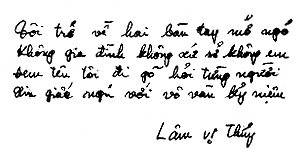 Tôi trở về hai bàn tay mồ ngó
Không gia đình không xứ sở không em
Đem tên tôi đi gõ hỏi từng người
Xin giấc ngủ với vô vàn kỷ niệm
Lâm vị Thủy